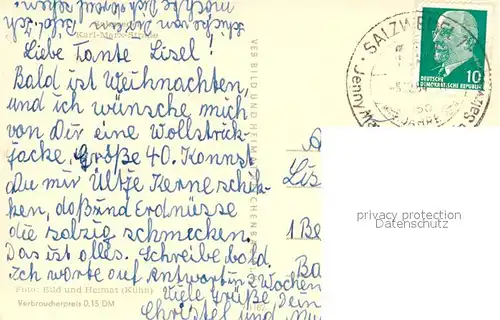 Karl-Marx-Straße
Liebe Tante Lisel!
Bald ist Weihnachten,
und ich wünsche mich
von Dir eine Wollstrick-
jacke, Größe 40. Konnst
Du mir Ültje Kerne schik-
ken, doß sind Erdnüsse
die salzig schmecken.
Das ist alles. Schreibe bald.
Ich worte auf Antwort in 2 Wochen
Viele Grüße, Dein
Christel und
Foto: Bild und Heimat (Kühn)
Verbraucherpreis 0,15 DM
VEB BILD UND HEIMAT REICHENBACH
SALZWE
Jenny
JAHRE
Salzw
10
DEUTSCHE
DEMOKRATISCHE REPUBLIK
A
Lis
1 Be
Ba
privacy protection
Datenschutz